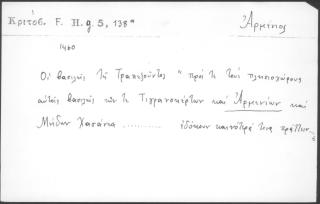 Κριτόβ. F. H. g 5, 138ᵃ
Ἀρμένιος
1460
Οἱ βασιλεῖς τῆς Τραπεζοῦντος " πρός τε τοὺς πλησιοχώρους
αὐτοῖς βασιλεῖς τῶν τε Τιγρανοκέρτων καὶ Ἀρμενίων καὶ
Μήδων Χασάνην .......... ἐδόκουν καινότερά τινα πράττειν